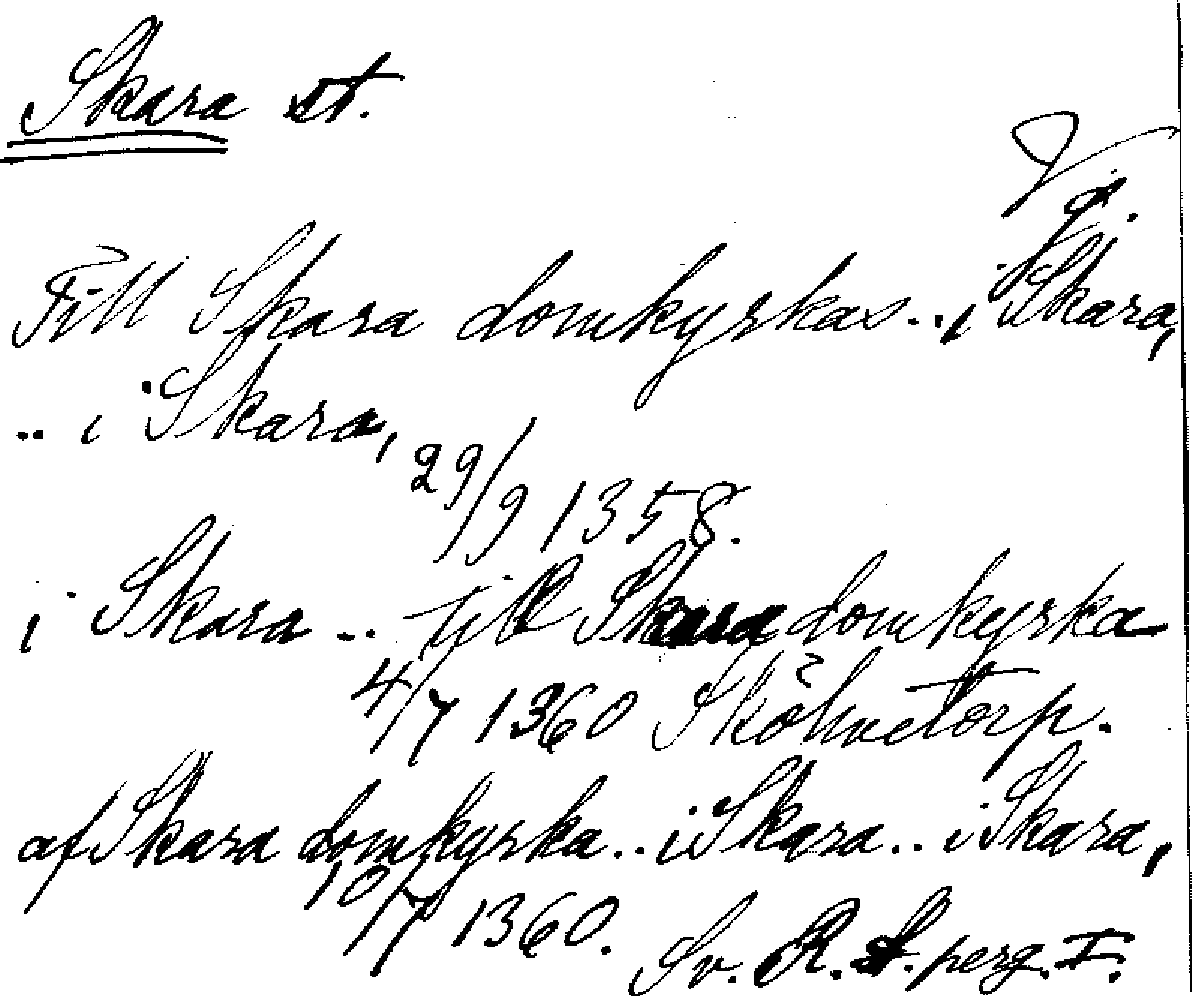 Skara st.
Vg.
Till Skara domkyrkas .. i Skara,
.. i Skara,
29/9 1358.
i Skara .. till Skara domkyrka
4/7 1360 Sköhvetorp.
af Skara domkyrka .. i Skara .. i Skara,
10/7 1360.
Sv. R. A. perg. I.